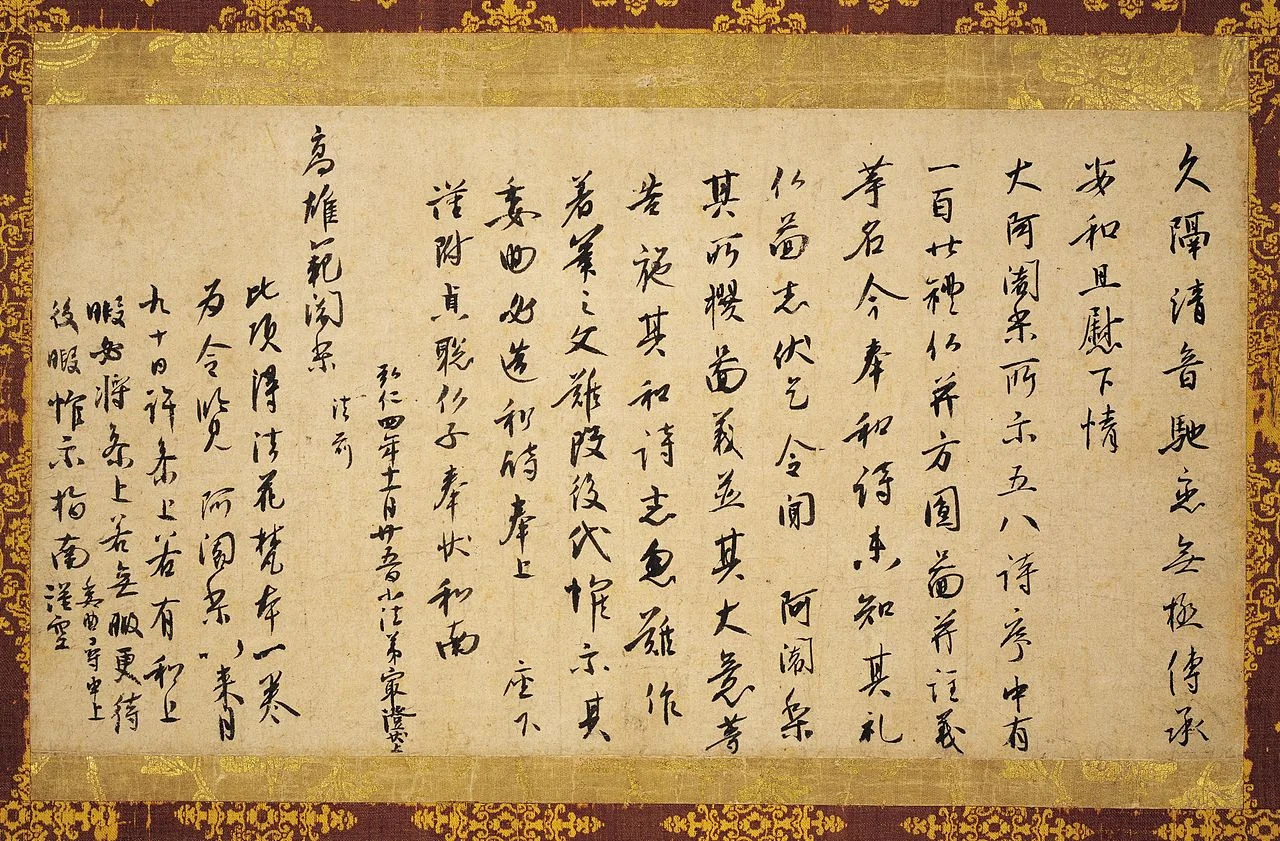 久隔清音馳戀無極傳承
安和且慰下情
大阿闍梨所示五八詩序中有
一百廿禮仏并方圓圖并註義
等名今奉和詩未知其礼
仏圖志伏乞令聞 阿闍梨
其所撰圖義並其大意等
告施其和詩者忽難作
著筆之文難改後代惟示其
委曲必造和詩奉上 座下
謹附貞聡仏子奉状和南
弘仁四年十一月廿五日小法弟最澄状上
高雄範闍梨
法前
此頃得法花梵本一巻
為令覧 阿闍梨以来月
九十日許参上若有和上
暇必将参上若無暇更待
後暇惟示指南委曲尋申上
謹空